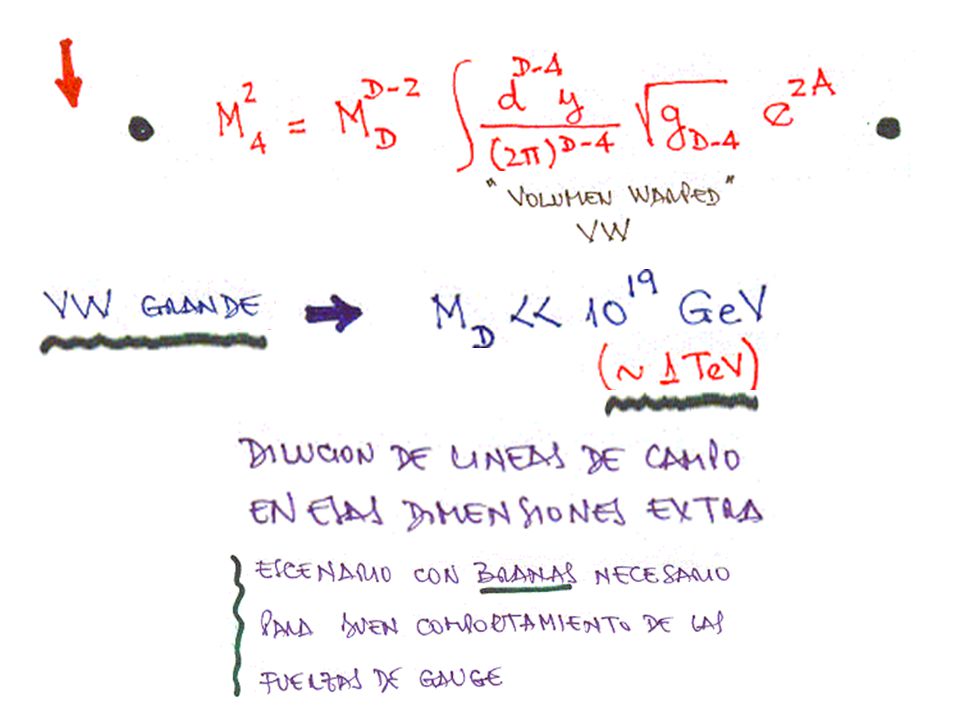 M_4^2 = M_D^{D-2} ∫ \frac{d^{D-4} y}{(2π)^{D-4}} \sqrt{g_{D-4}} e^{2A}
"VOLUMEN WARPED"
VW
VW GRANDE → M_D << 10^{19} GeV
(~ 1 TeV)
DILUCION DE LINEAS DE CAMPO
EN ESAS DIMENSIONES EXTRA
ESCENARIO CON BRANAS NECESARIO
PARA BUEN COMPORTAMIENTO DE LAS
FUERZAS DE GAUGE